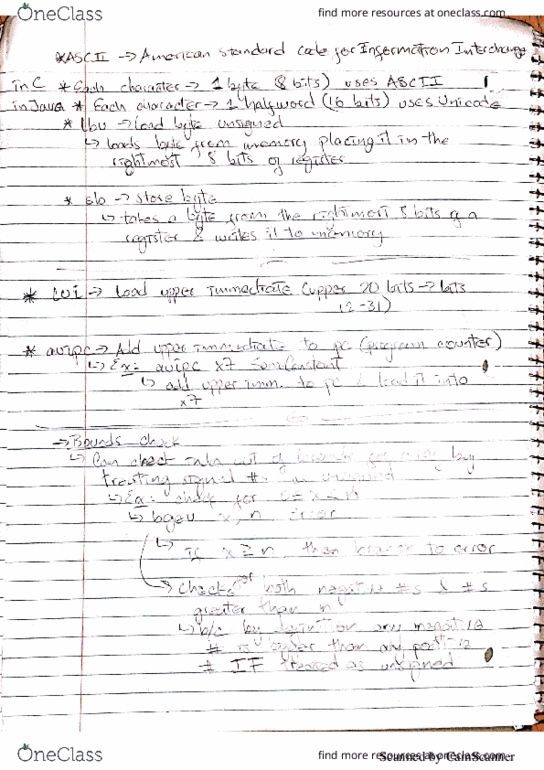 OneClass
find more resources at oneclass.com
*ASCII → American standard code for Information Interchange
in C * Each character → 1 byte (8 bits) uses ASCII
in Java * Each character → 1 halfword (16 bits) uses Unicode
* lbu → Load byte unsigned
↳ loads byte from memory placing it in the
rightmost 8 bits of register
* sb → store byte
↳ takes a byte from the rightmost 8 bits of a
register & writes it to memory
* lui → Load upper immediate (upper 20 bits → bits
12-31)
* auipc → Add upper immediate to pc (program counter)
↳ Ex: auipc x7 SomConstant
↳ add upper imm. to pc & load it into
x7
→ Bounds check
↳ Can check out of for by
treating signed #s as unsigned
↳ Ex: check for
↳ bgeu x, n, error
↳ if x ≥ n, then branch to error
→ checks for both negative #s & #s
greater than n
↳ b/c by definition any negative
# is greater than any positive
# IF treated as unsigned
OneClass
find more resources at oneclass.com
Scanned by CamScanner